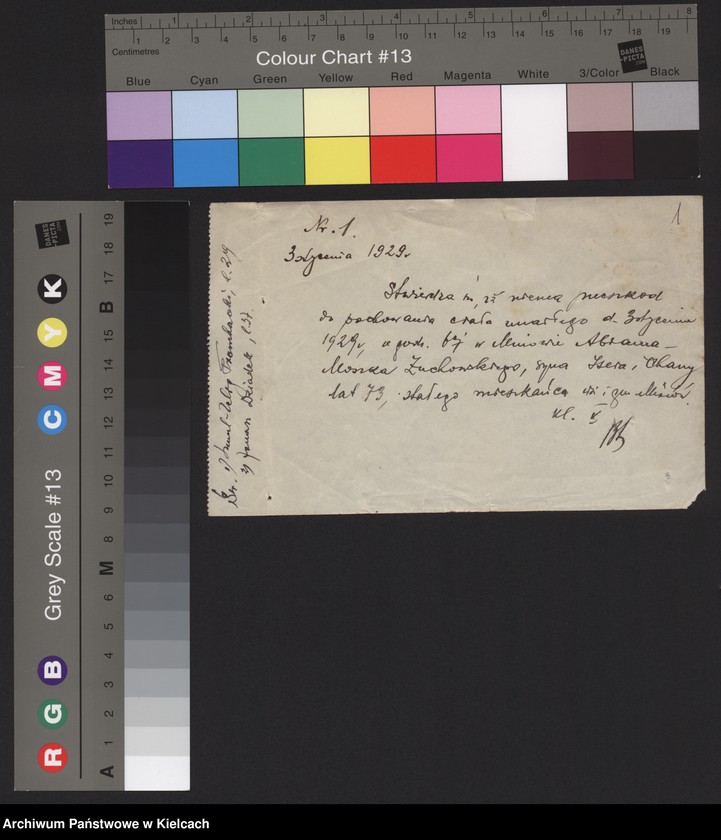 Inches 1 2 3 4 5 6 7 8
Centimetres 1 2 3 4 5 6 7 8 9 10 11 12 13 14 15 16 17 18 19
Colour Chart #13
DANES-PICTA.COM
Blue Cyan Green Yellow Red Magenta White 3/Color Black
1
Nr. 1.
3 stycznia 1929.
Stwierdza się, iż niema przeszkod
do pochowania ciała zmarłego d. 3 stycznia
1929, o godz. w Minowie Abrama-
Moszka Żuchowskiego, syna Isera i Chany
lat 73, stałego mieszkańca wsi i gm.
kl. V
Dziadek, l. 37.
DANES-PICTA.COM
Grey Scale #13
R G B C M Y K
A 1 2 3 4 5 6 M 8 9 10 11 12 13 14 15 16 B 17 18 19
Archiwum Państwowe w Kielcach